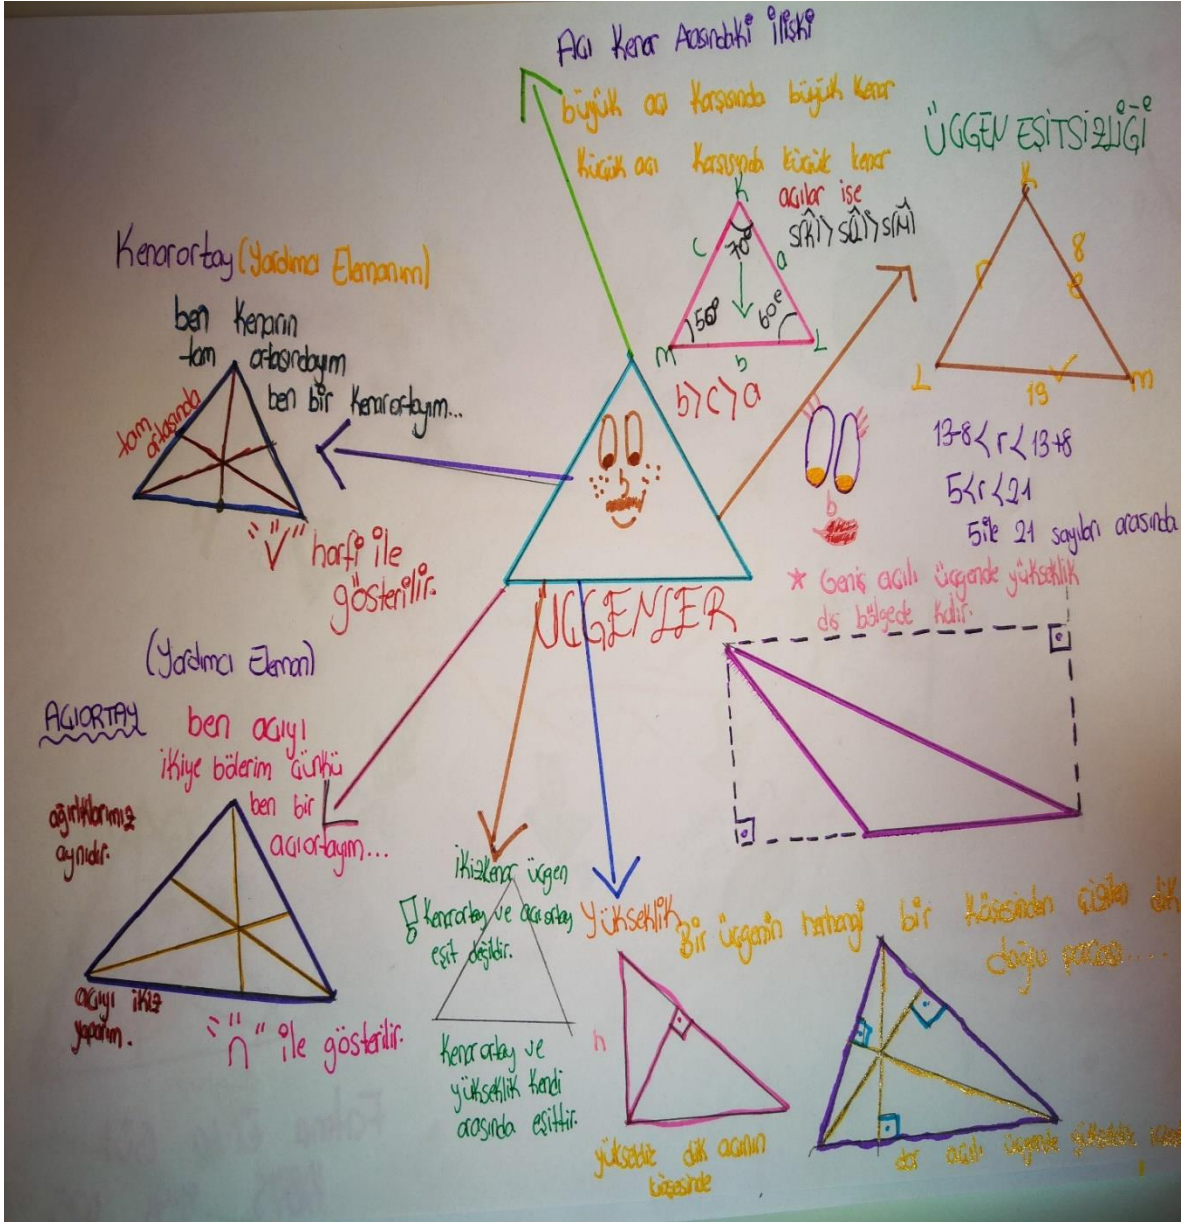 Açı Kenar Arasındaki ilişki
büyük açı karşısında büyük kenar
küçük açı karşısında küçük kener
açılar ise
s(K̂)>s(L̂)>s(M̂)
K
c
70°
a
50°
60°
M
b
L
b>c>a
ÜÇGEN EŞİTSİZLİĞİ
K
r
8
L
19
m
13-8<r<13+8
5<r<21
5 ile 21 sayıları arasında
Kenarortay (Yardımcı Elemanım)
ben Kenarın
tam ortasındayım
ben bir Kenarortayım...
tam
ortasında
"V" harfi ile
gösterilir.
ÜÇGENLER
* Geniş açılı üçgende yükseklik
dış bölgede kalır.
(Yardımcı Eleman)
AÇIORTAY
ben açıyı
ikiye bölerim çünkü
ben bir
açıortayım...
ağırlıklarımız
aynıdır.
açıyı ikiz
yaparım.
"n" ile gösterilir.
ikizkenar üçgen
! Kenarortay ve açıortay
eşit değildir.
Kenarortay ve
yükseklik kendi
arasında eşittir.
Yükseklik
Bir üçgenin herhangi bir köşesinden çizilen dik
doğru parçası....
h
yükseklik dik açının
köşesinde
dar açılı üçgende yükseklik